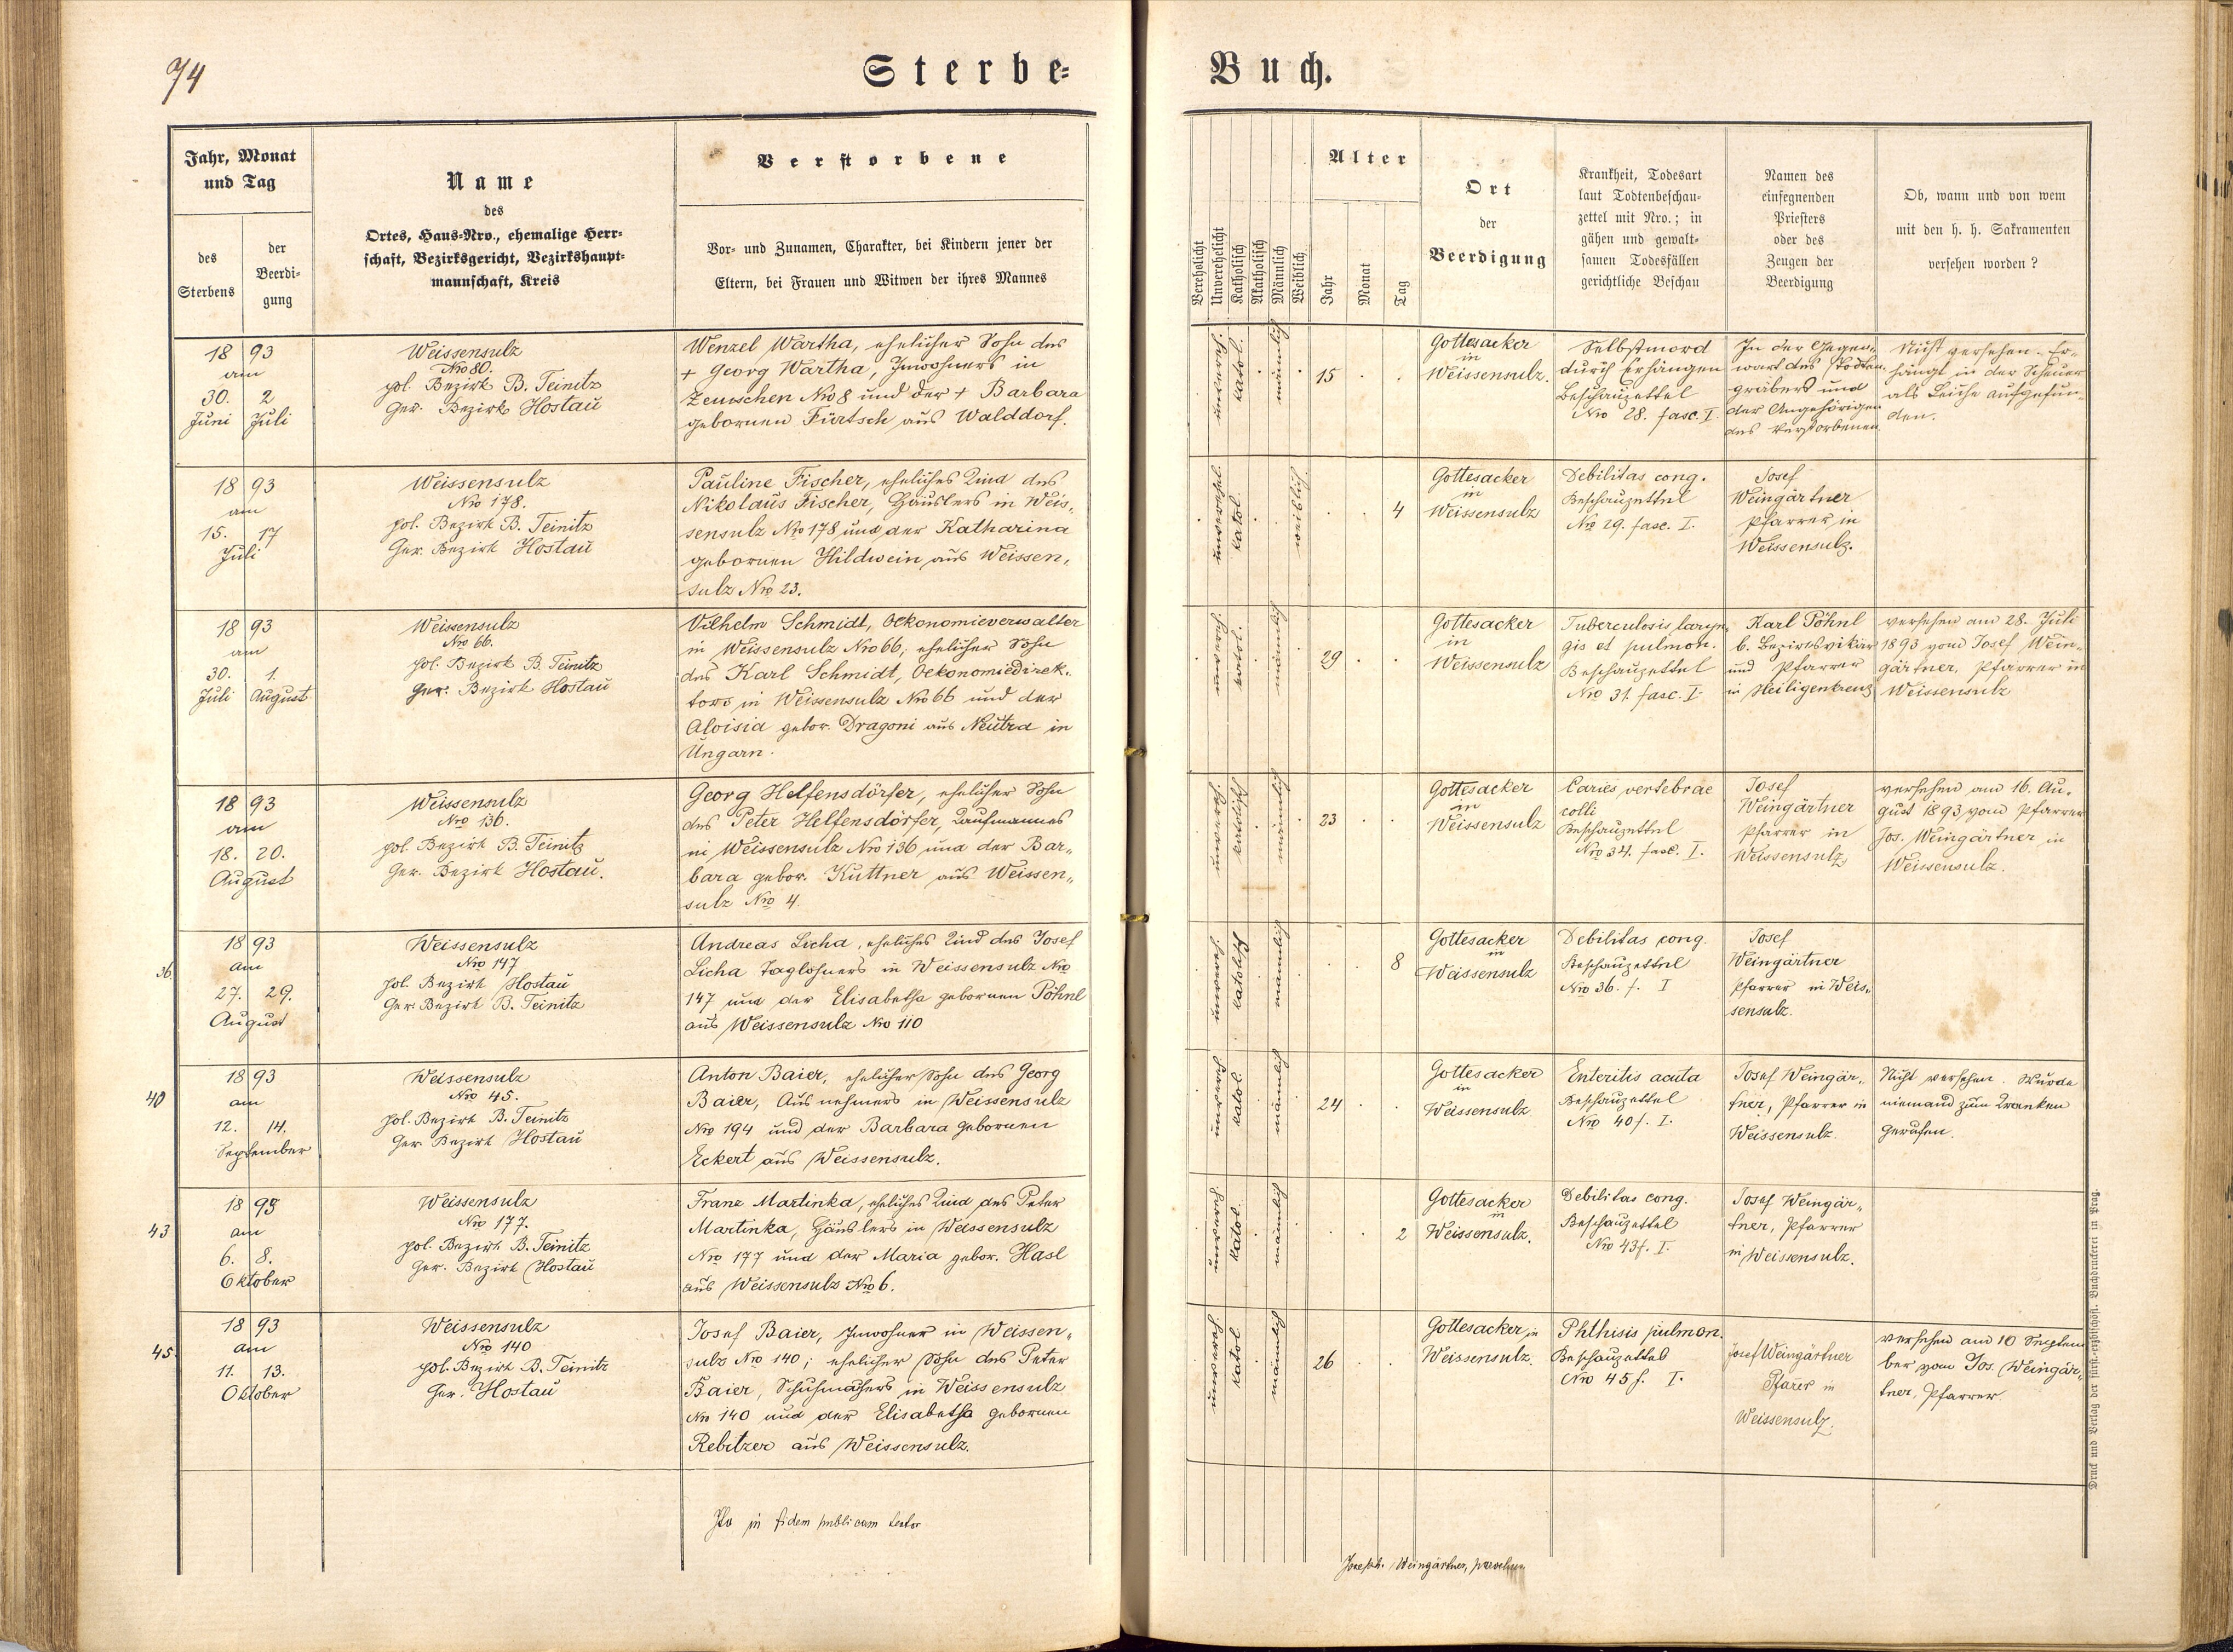 74
Sterbe-
Buch.
Jahr, Monat
und Tag
des
Sterbens
der
Beerdi-
gung
Name
des
Ortes, Haus-Nro., ehemalige Herr-
schaft, Bezirksgericht, Bezirkshaupt-
mannschaft, Kreis
Verstorbene
Vor- und Zunamen, Charakter, bei Kindern jener der
Eltern, bei Frauen und Witwen der ihres Mannes
Verehelicht
Unverehelicht
Katholisch
Akatholisch
Männlich
Weiblich
Alter
Jahr
Monat
Tag
Ort
der
Beerdigung
Krankheit, Todesart
laut Todtenbeschau-
zettel mit Nro.; in
gähen und gewalt-
samen Todesfällen
gerichtliche Beschau
Namen des
einsegnenden
Priesters
oder des
Zeugen der
Beerdigung
Ob, wann und von wem
mit den h. h. Sakramenten
versehen worden?
18 93
am
30. 2
Juni Juli
Weissensulz
Nro 80.
pol. Bezirk B. Teinitz
Ger. Bezirk Hostau
Wenzel Wartha, ehelicher Sohn des
+ Georg Wartha, Inwohners in
Zemschen Nro 8 und der + Barbara
gebornen Fürtsch aus Walddorf.
unvereh.
katol.
männlich
15
Gottesacker
in
Weissensulz.
Selbstmord
durch Erhängen
Beschauzettel
Nro 28. fasc. I
In der Gegen-
wart des Todten-
gräbers und
der Angehörigen
des Verstorbenen.
Nicht versehen. Er-
hängt in der Scheuer
als Leiche aufgefun-
den.
18 93
am
15. 17
Juli
Weissensulz
Nro 178.
pol. Bezirk B. Teinitz
Ger. Bezirk Hostau
Pauline Fischer, eheliches Kind des
Nikolaus Fischer, Häuslers in Weis-
sensulz Nro 178 und der Katharina
gebornen Hildwein aus Weissen-
sulz Nro 23.
unverehel.
katol.
weiblich.
4
Gottesacker
in
Weissensulz
Debilitas cong.
Beschauzettel
Nro 29. fasc. I.
Josef
Weingärtner
Pfarrer in
Weissensulz.
18 93
am
30. 1.
Juli August
Weissensulz
Nro 66.
pol. Bezirk B. Teinitz
Ger. Bezirk Hostau
Vilhelm Schmidt, Oekonomieverwalter
in Weissensulz Nro 66; ehelicher Sohn
des Karl Schmidt, Oekonomiedirek-
tors in Weissensulz Nro 66 und der
Aloisia gebor. Dragoni aus Neutra in
Ungarn.
unvereh.
katol.
männlich
29
Gottesacker
in
Weissensulz
Tuberculosis laryn-
gis et pulmon.
Beschauzettel
Nro 31. fasc. I.
Karl Pöhnl
b. Bezirksvikär
und Pfarrer
in Heiligenkreuz
versehen am 28. Juli
1893 vom Josef Wein-
gärtner, Pfarrer in
Weissensulz
18 93
am
18. 20.
August
Weissensulz
Nro 136.
pol. Bezirk B. Teinitz
Ger. Bezirk Hostau.
Georg Helfensdörfer, ehelicher Sohn
des Peter Helfensdörfer, Kaufmannes
in Weissensulz Nro 136 und der Bar-
bara gebor. Kuttner aus Weissen-
sulz Nro 4.
unvereh.
katolisch
männlich
23
Gottesacker
in
Weissensulz
Caries vertebrae
colli
Beschauzettel
Nro 34. fasc. I.
Josef
Weingärtner
Pfarrer in
Weissensulz
versehen am 16. Au-
gust 1893 vom Pfarrer
Jos. Weingärtner in
Weissensulz.
36
18 93
am
27. 29.
August
Weissensulz
Nro 147
pol. Bezirk Hostau
Ger. Bezirk B. Teinitz
Andreas Licha, eheliches Kind des Josef
Licha Taglöhners in Weissensulz Nro
147 und der Elisabetha gebornen Pöhnl
aus Weissensulz Nro 110
unvereh.
katolisch
männlich
8
Gottesacker
in
Weissensulz
Debilitas cong.
Beschauzettel
Nro 36. f. I
Josef
Weingärtner
Pfarrer in Weis-
sensulz.
40
18 93
am
12. 14.
September
Weissensulz
Nro 45.
pol. Bezirk B. Teinitz
Ger. Bezirk Hostau
Anton Baier, ehelicher Sohn des Georg
Baier, Ausnehmers in Weissensulz
Nro 194 und der Barbara gebornen
Eckert aus Weissensulz.
unvereh
katol.
männlich
24
Gottesacker
in
Weissensulz
Enteritis acuta
Beschauzettel
Nro 40 f. I.
Josef Weingär-
tner, Pfarrer in
Weissensulz.
Nicht versehen. Wurde
niemand zum Kranken
gerufen.
43
18 93
am
6. 8.
Oktober
Weissensulz
Nro 177.
pol. Bezirk B. Teinitz
Ger. Bezirk Hostau
Franz Martinka, eheliches Kind des Peter
Martinka, Häuslers in Weissensulz
Nro 177 und der Maria gebor. Hasl
aus Weissensulz Nro 6.
unvereh.
katol.
männlich
2
Gottesacker
in
Weissensulz.
Debilitas cong.
Beschauzettel
Nro 43 f. I.
Josef Weingär-
tner, Pfarrer
in Weissensulz.
45
18 93
am
11. 13.
Oktober
Weissensulz
Nro 140
pol. Bezirk B. Teinitz
Ger. Hostau
Josef Baier, Inwohner in Weissen-
sulz Nro 140; ehelicher Sohn des Peter
Baier, Schuhmachers in Weissensulz
Nro 140 und der Elisabetha gebornen
Rebitzer aus Weissensulz.
unvereh
katol
männlich
26
Gottesacker in
Weissensulz.
Phthisis pulmon.
Beschauzettel
Nro 45 f. I.
Josef Weingärtner
Pfarer in
Weissensulz.
versehen am 10 Septem
ber vom Jos. Weingär-
tner, Pfarrer
Ita in fidem publicam testor
Joseph. Weingärtner, parochus
Druck und Verlag der fürst-erzbischöfl. Buchdruckerei in Prag.